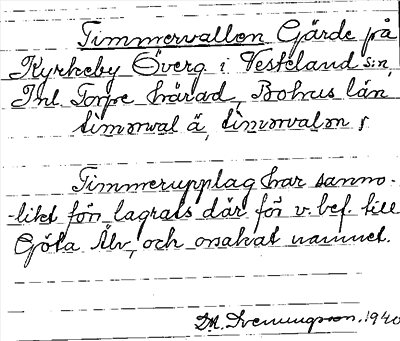 Timmervallen Gärde på
Kyrkeby Överg i Vesteland s:n,
Inl. Torpe härad, Bohus län
timɷrval ä, timɷrvalɷn s
Timmerupplag har sanno-
-likt förr lagrats där för v. bef. till
Göta Älv, och orsakat namnet.
D.A. Svenungsson. 1940